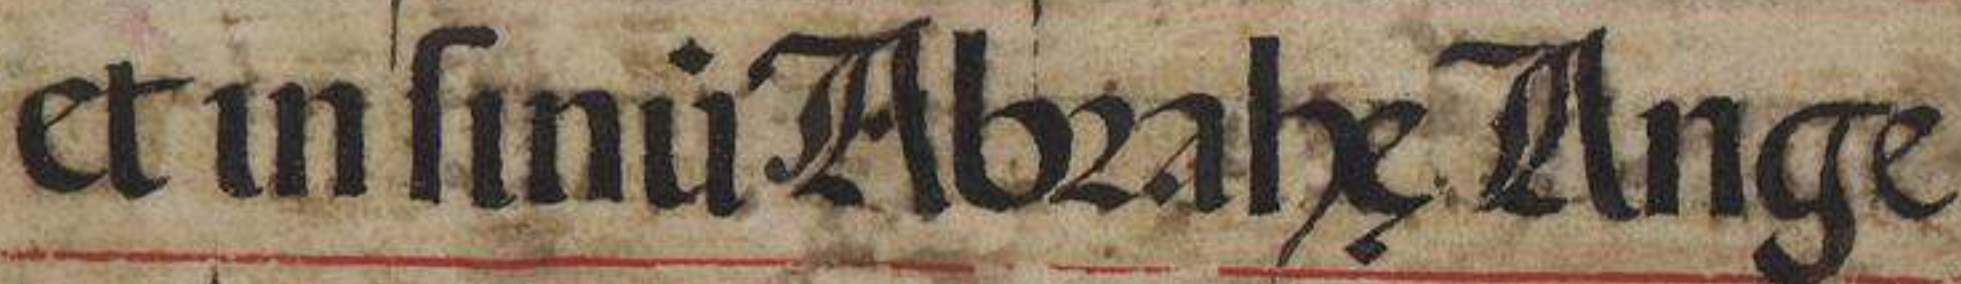 et in ſinu Abrahę Ange